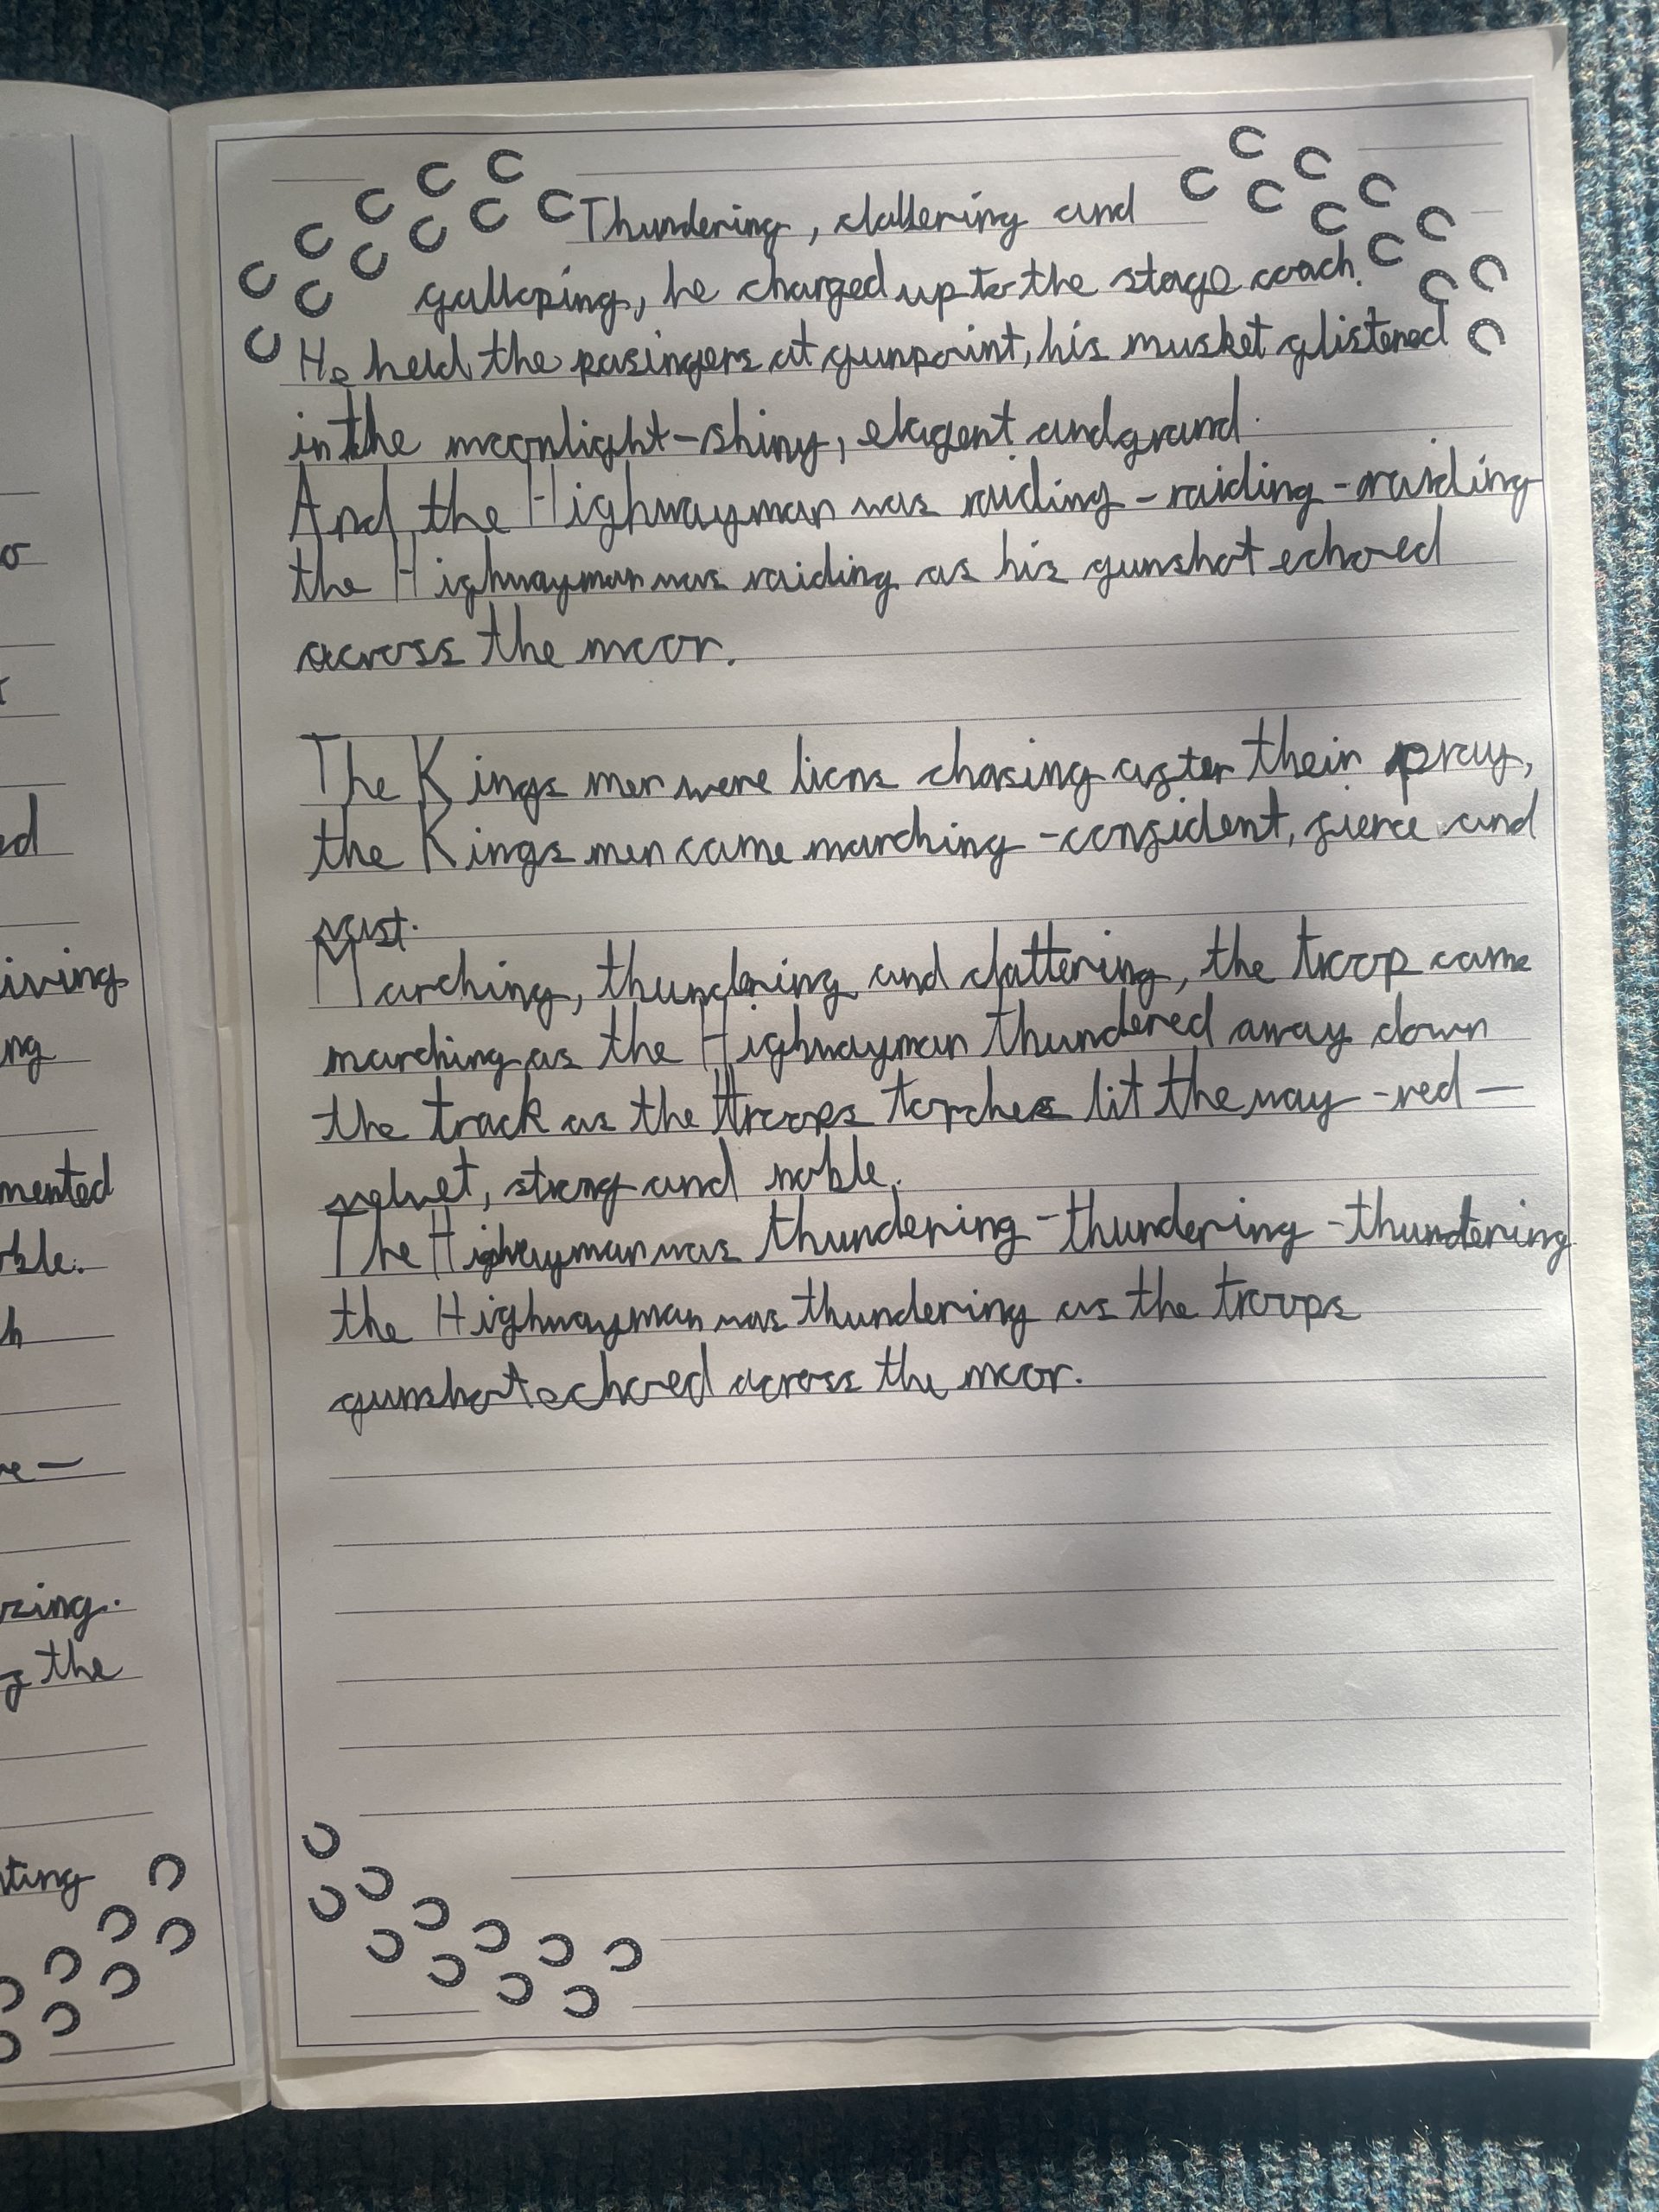 Thundering, clattering and
galloping, he charged up to the stage coach.
He held the pasingers at gunpoint, his musket glistened
in the moonlight-shiny, elagent and grand.
And the Highwayman was raiding - raiding - raiding
the Highwayman was raiding as his gunshot echoed
across the moor.
The Kings men were lions chasing after their pray,
the Kings men came marching - confident, fierce and
vast.
Marching, thundering and clattering, the troop came
marching as the Highwayman thundered away down
the track as the troops torches lit the way - red -
velvet, strong and noble.
The Highwayman was thundering - thundering - thundering
the Highwayman was thundering as the troops
gunshot echoed across the moor.
iving
ng
mented
ble.
zing.
the
ting